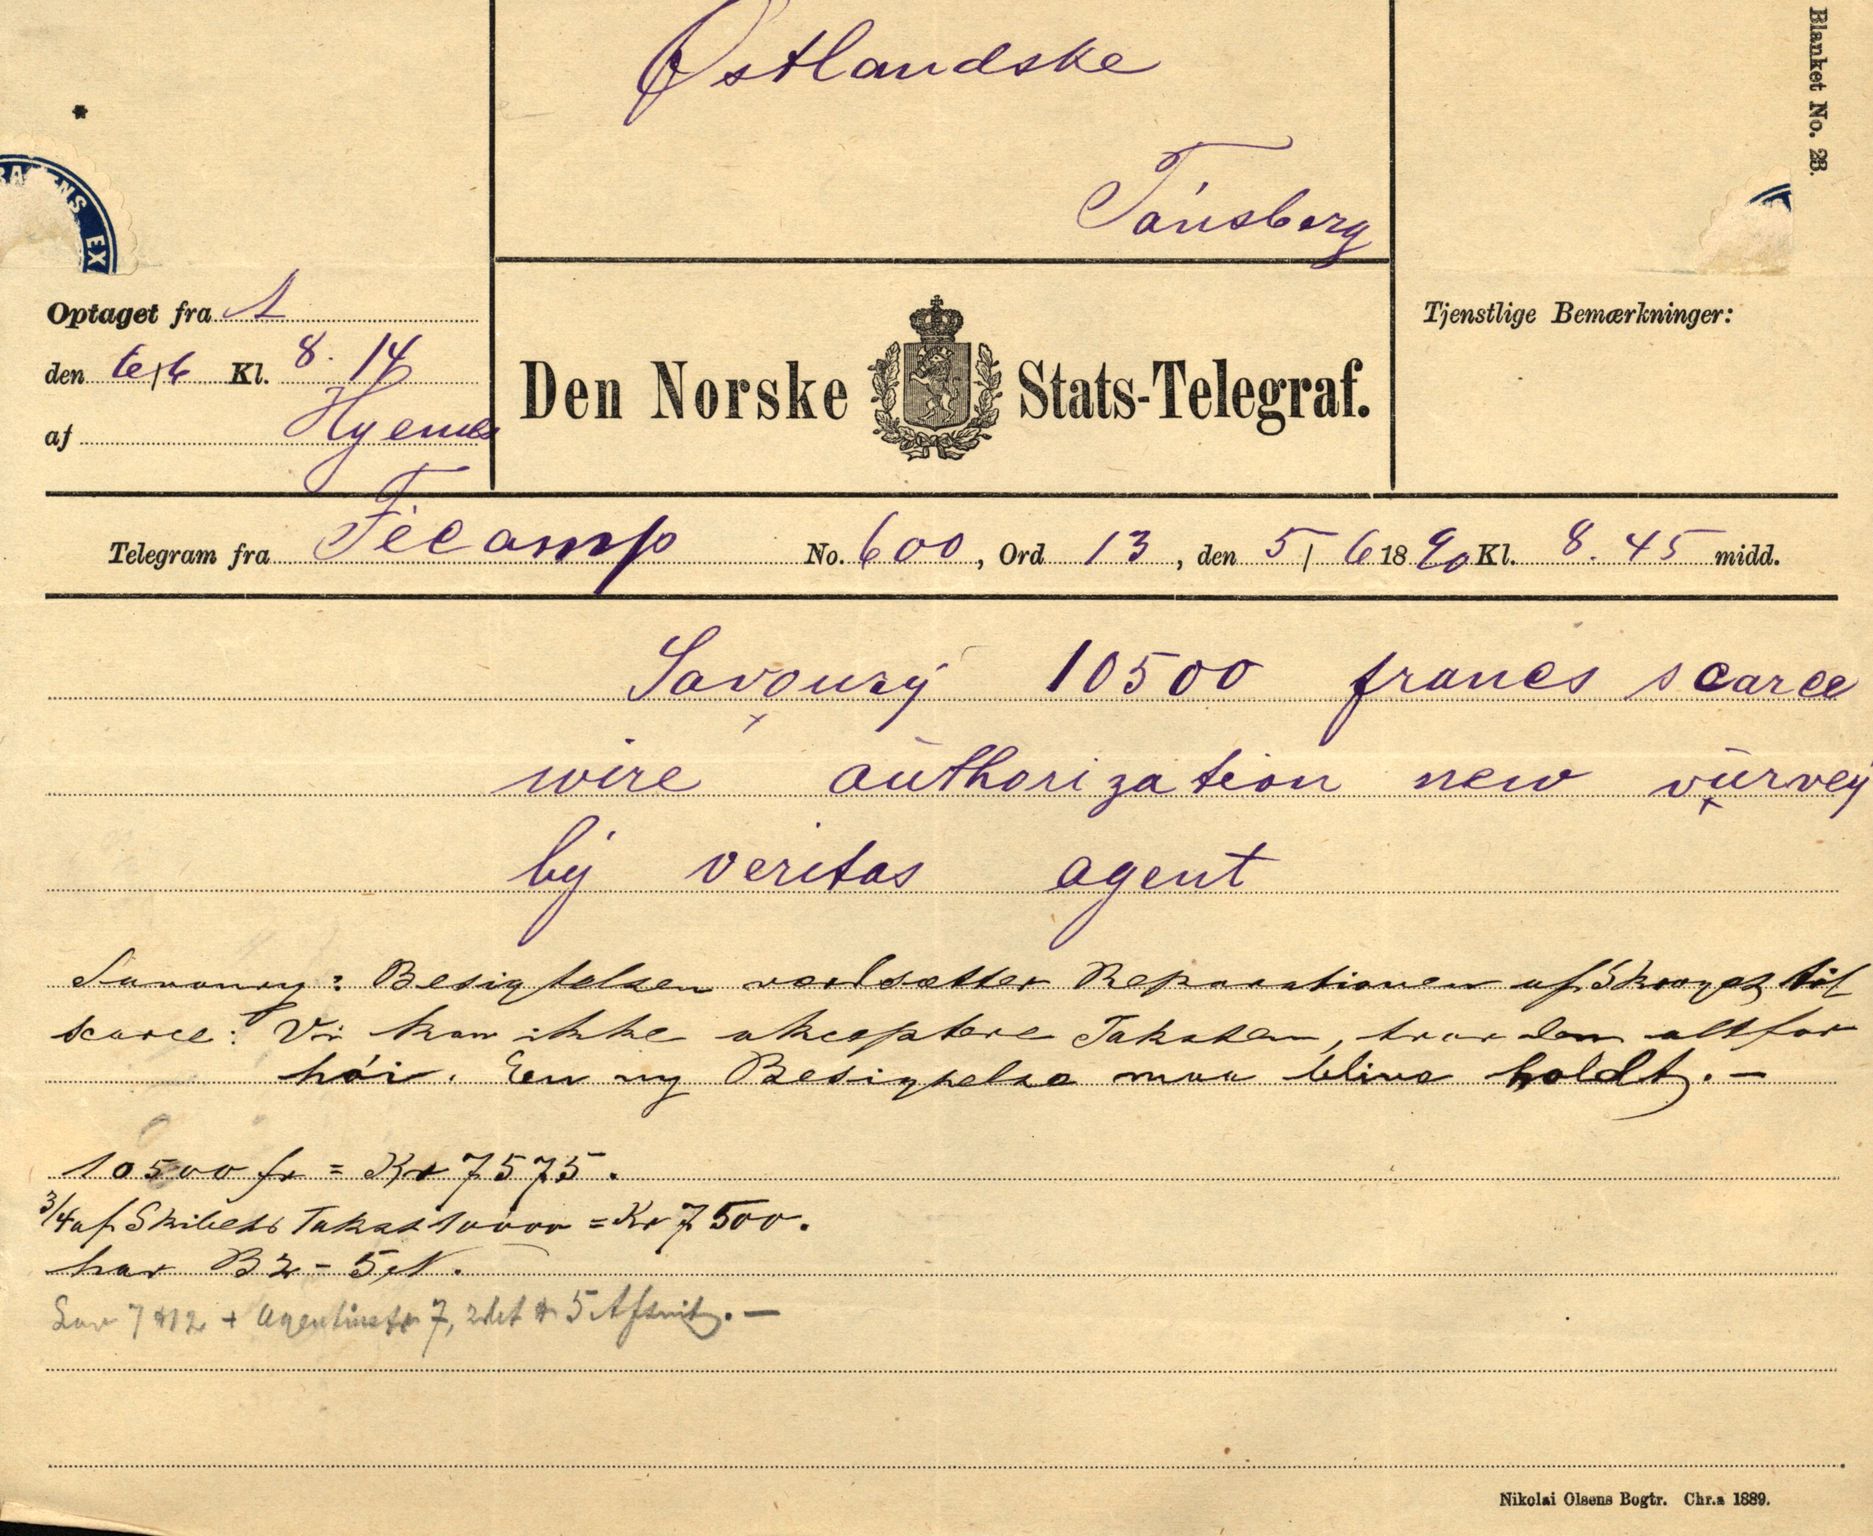 Blanket No. 28.
Østlandske
Tónsberg
ENS EX
Optaget fra A
den 6/6 Kl. 8.14
af Hyemes
Den Norske Stats-Telegraf.
Tjenstlige Bemærkninger:
Telegram fra Fécamp No. 600, Ord 13, den 5/6 1890 Kl. 8.45 midd.
Savoury 10500 francs scarce
wire authorization new vurvey
by veritas agent
Savoury: Besigtelsen værdsætter Reparationen af Skroget til
scarce: Vi kan ikke akceptere Taksten, tror den altfor
hói. En ny Besigtelse maa blive holdt. —
10500 fr = Kr 7575.
3/4 af Skibets Takst 10000 = Kr 7500.
har B 2 - 5 N.
7 12 + Agentinstr 7, 2det 5 Afsnit. —
Nikolai Olsens Bogtr. Chr.a 1889.